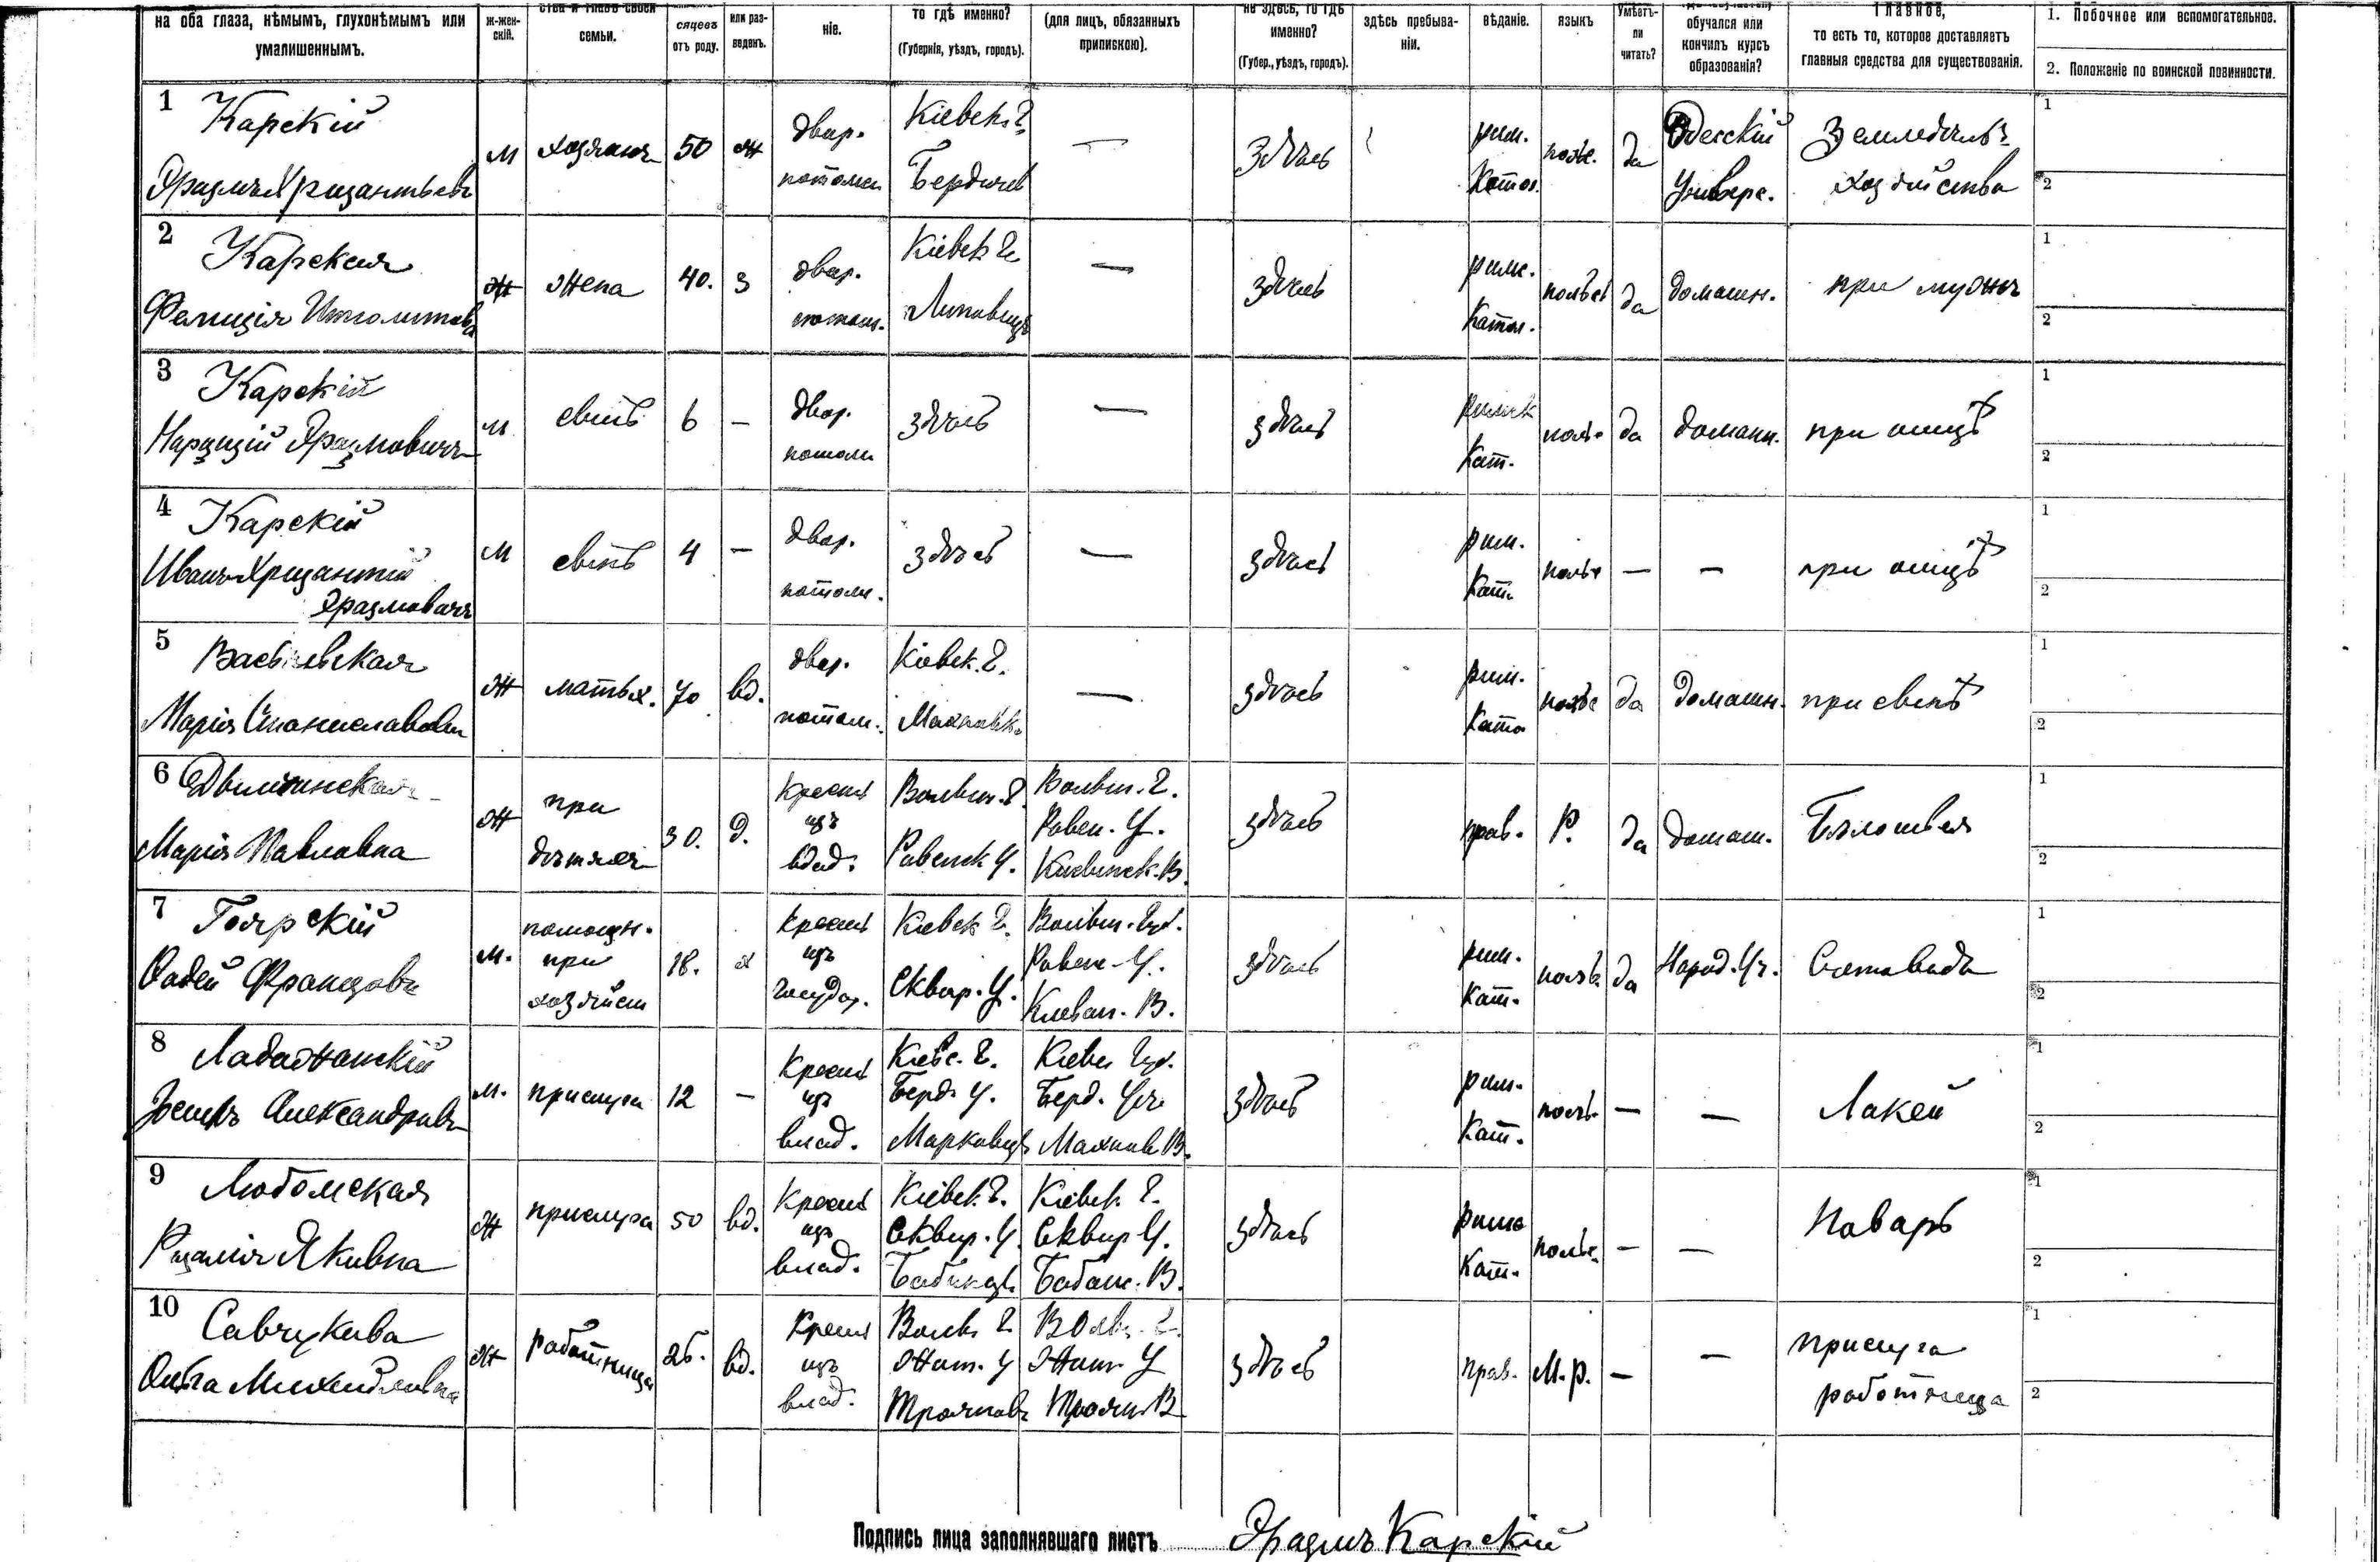 на оба глаза, нѣмымъ, глухонѣмымъ или умалишеннымъ.
ж-жен-скій.
ства и главѣ своей семьи.
сяцевъ отъ роду.
или раз-веденъ.
ніе.
то гдѣ именно? (Губернія, уѣздъ, городъ).
(для лицъ, обязанныхъ припискою).
не здѣсь, то гдѣ именно? (Губер., уѣздъ, городъ).
здѣсь пребыва-ніи.
вѣданіе.
языкъ
Умѣетъ-ли читать?
обучался или кончилъ курсъ образованія?
Главное, то есть то, которое доставляетъ главныя средства для существованія.
1. Побочное или вспомогательное.
2. Положеніе по воинской повинности.
1 Карскій
Эразмъ Хризантьевъ
М хозяинъ 50 ж двор. потомст Кіевск. Г. Бердичев — здѣсь рим. Катол. польс. да Одесскій Универс. Земледѣльч. хозяйство
2 Карская
Фелиція Ипполитовна
Ж жена 40. з двор. потом. Кіевск Г. Липовец — здѣсь римс. Катол. польск да домашн. при мужѣ
3 Карскій
Нарцизій Эразмовичъ
М сынъ 6 — двор. потом здѣсь — здѣсь римск Кат. польс да домашн. при отцѣ
4 Карскій
Иванъ Хризантій Эразмовичъ
М сынъ 4 — двор. потом. здѣсь — здѣсь рим. Кат. польс — — при отцѣ
5 Васьневская
Марія Станиславовн
Ж мать х. 70 вд. двор. потом. Кіевск. Г. Махновк. — здѣсь рим. Като польс да домашн. при сынѣ
6
Марія Павловна
Ж при дѣтяхъ 30. д. Крест изъ влад. Волын. Г. Ровенск У. Волын. Г. Ровен. У. здѣсь прав. Р. да домаш. Бѣлошвея
7 Гоярскій
Фадей Францовъ
М. помощн. при хозяйст 18. х Крест изъ государ. Кіевск Г. Сквир. У. Волын. Губ. Ровен У. Клеван. В. здѣсь рим. Кат. польс да Народ. Уч.
8 Ладажанскій
Іосифъ Александровъ
М. прислуга 12 — Крест изъ влад. Кіевс. Г. Берд. У. Марковцы Кіевс Губ. Берд. Уѣз Махнов В. здѣсь рим. Кат. польс — — Лакей
9 Любомская
Розалія Яковна
Ж прислуга 50 вд. Крест изъ влад. Кіевск. Г. Сквир. У. Кіевск. Г. Сквир У. здѣсь римс Кат. польс. — — Поваръ
10 Савчукова
Ольга Михайловна
Ж Работница 25. вд. Крест изъ влад. Волын Г. Жит. У Троянов Волын. Г. Жит У Троян. В. здѣсь прав. М. р. — — прислуга работница
1
2
Подпись лица заполнявшаго листъ Эразмъ Карскій